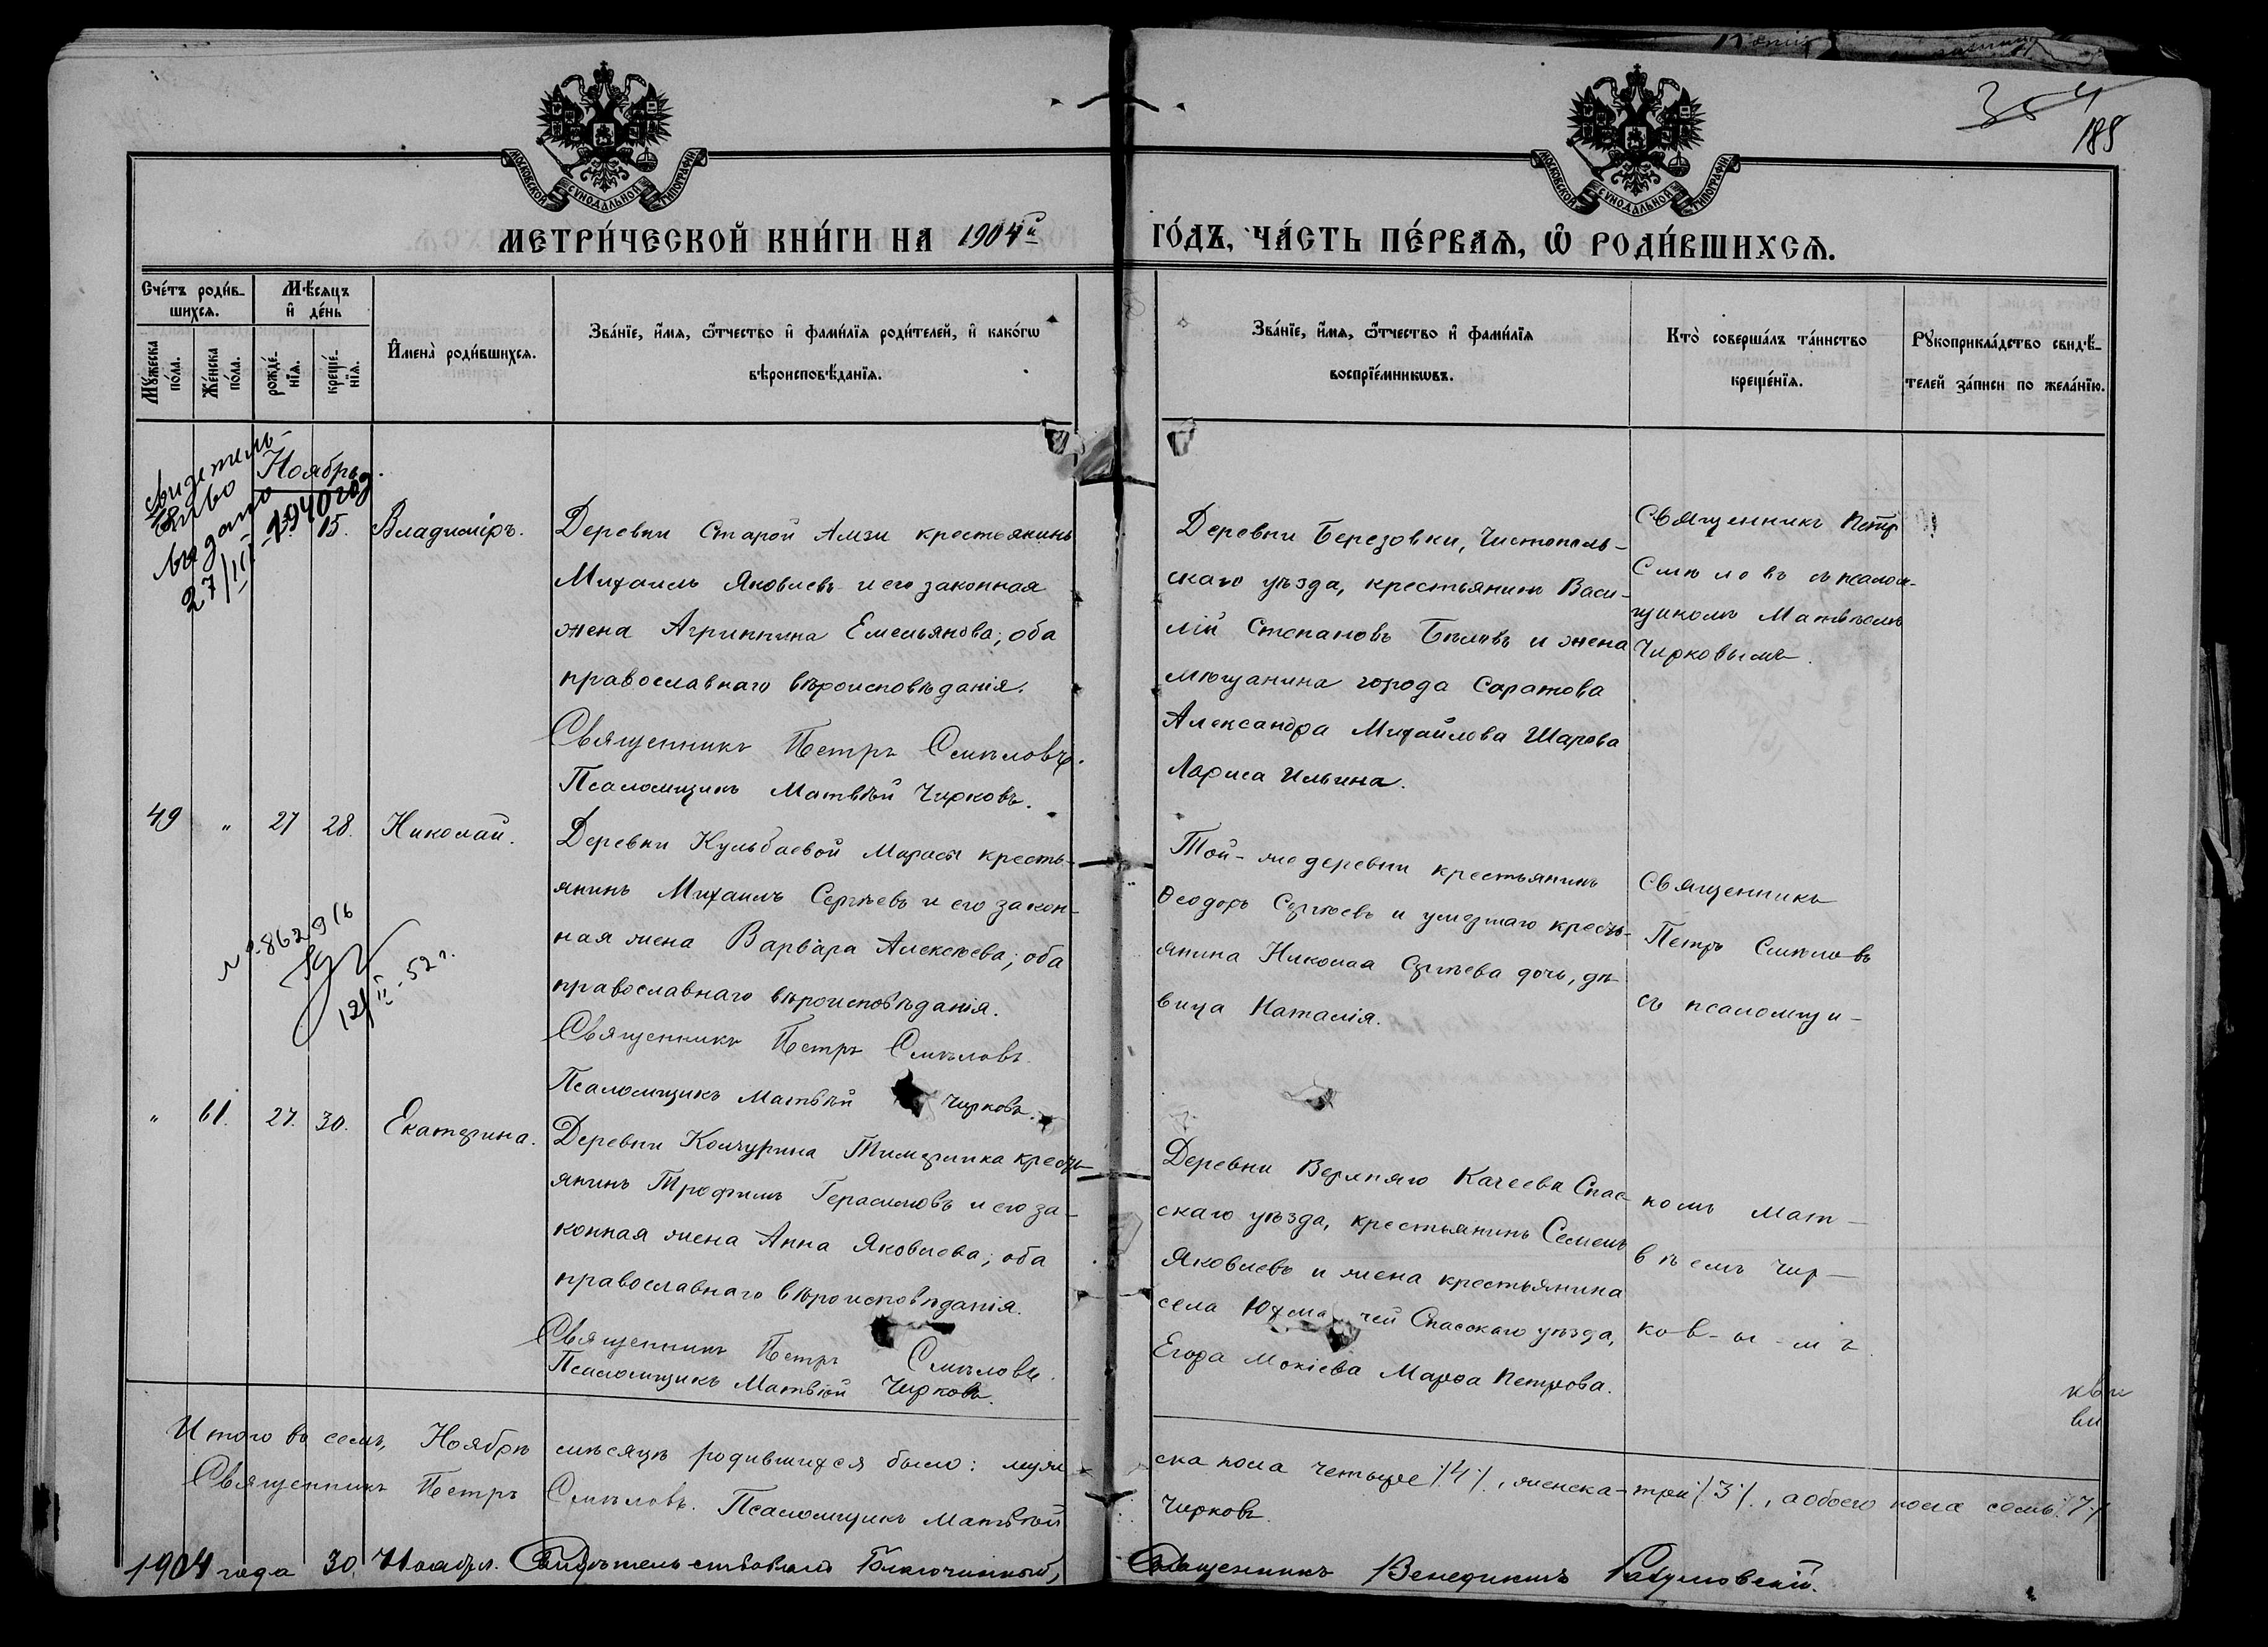 354
185
МОСКОВСКОЙ СѴНОДАЛЬНОЙ ТИПОГРАФІИ
МОСКОВСКОЙ СѴНОДАЛЬНОЙ ТИПОГРАФІИ
МЕТРИ́ЧЕСКОЙ КНИ́ГИ НА 1904й
ГО́ДЪ, ЧА́СТЬ ПЕ́РВАЯ, Ѿ РОДИ́ВШИХСѦ.
Сче́тъ роди́в-
шихсѧ.
Мꙋ́жеска по́ла.
Же́нска по́ла.
Мѣ́сѧцъ
и҆ де́нь
рожде́-
нїѧ.
креще́-
нїѧ.
И҆мена̀ роди́вшихсѧ.
Зва́нїе, и҆́мѧ, ѻ҆́тчество и҆ фами́лїѧ роди́телей, и҆ како́гѡ
вѣроисповѣ́данїѧ.
Зва́нїе, и҆́мѧ, ѻ҆́тчество и҆ фами́лїѧ
воспрїе́мникѡвъ.
Кто̀ соверша́лъ та́инство
креще́нїѧ.
Рꙋкоприкла́дство свидѣ́-
телей за́писи по жела́нїю.
Свидетель-
ство
выдано
27/III-1940 год
Ноябрь.
15.
Владиміръ.
Деревни Старой Амзи крестьянинъ
Михаилъ Яковлевъ и его законная
жена Агриппина Емельянова; оба
православнаго вѣроисповѣданія.
Священникъ Петръ Смѣловъ.
Псаломщикъ Матвѣй Чирковъ.
Деревни Березовки, Чистополь-
скаго уѣзда, крестьянинъ Васи-
лій Степановъ Бѣловъ и жена
мѣщанина города Саратова
Александра Михайлова Шарова
Лариса Ильина.
Священникъ Петръ
Смѣловъ съ псалом-
щикомъ Матвѣемъ
Чирковымъ.
49 " 27 28. Николай.
Деревни Кульбаевой Марасы кресть-
янинъ Михаилъ Сергѣевъ и его закон-
ная жена Варвара Алексѣева; оба
православнаго вѣроисповѣданія.
Священникъ Петръ Смѣловъ.
Псаломщикъ Матвѣй Чирковъ.
Той-же деревни крестьянинъ
Ѳеодоръ Сергѣевъ и умершаго кресть-
янина Николая Сергѣева дочь, дѣ-
вица Наталія.
Священникъ
Петръ Смѣловъ
съ псаломщи-
862916
12/II-52 г.
" 61. 27. 30. Екатерина.
Деревни Кошурина Тимерлика кресть-
янинъ Трофимъ Герасимовъ и его за-
конная жена Анна Яковлева; оба
православнаго вѣроисповѣданія.
Священникъ Петръ Смѣловъ.
Псаломщикъ Матвѣй Чирковъ.
Деревни Верхняго Качеева Спас-
скаго уѣзда, крестьянинъ Семенъ
Яковлевъ и жена крестьянина
села Юхмачей Спасскаго уѣзда,
Егора Мокіева Марѳа Петрова.
комъ Мат-
вѣемъ Чир-
ков-ы-мъ.
Итого въ семъ, Ноябрѣ мѣсяцѣ родившихся было: муже
ска пола четыре /4/, женска-три /3/, а обоего пола семь /7/
Священникъ Петръ Смѣловъ. Псаломщикъ Матвѣй
Чирковъ.
1904 года 30 Ноября. Свидѣтельствовалъ Благочинный,
Священникъ Венедиктъ